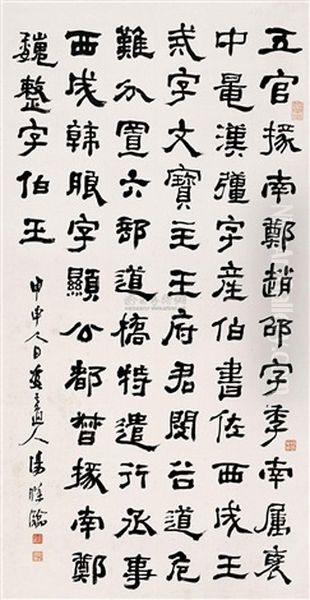 五官掾南鄭趙邵字季南屬褒
中鼂漢彊字産伯書佐西成王
戒字文寶主王府君閔谷道危
難分置六部道橋特遣行丞事
西成韓朖字顯公都督掾南鄭
魏整字伯王
甲申人日